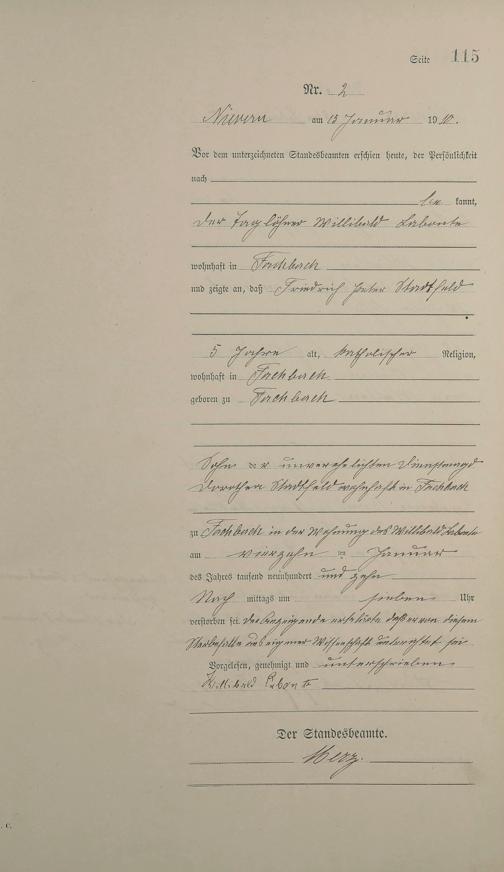 Seite 115
Nr. 2
Nievern am 15 Januar 1910.
Vor dem unterzeichneten Standesbeamten erschien heute, der Persönlichkeit
nach
be kannt,
der Taglöhner Willibald Labonte
wohnhaft in Fachbach
und zeigte an, daß Friedrich Peter Stadtfeld
5 Jahre alt, katholischer Religion,
wohnhaft in Fachbach
geboren zu Fachbach
Sohn der unverehelichten Dienstmagd
Dorothea Stadtfeld wohnhaft in Fachbach
zu Fachbach in der Wohnung des Willibald Labonte
am vierzehn Januar
des Jahres tausend neunhundert und zehn
Nach mittags um sieben Uhr
verstorben sei. Der Anzeigende erklärte daß er von diesem
Sterbefalle aus eigner Wissenschaft unterrichtet sei
Vorgelesen, genehmigt und unterschrieben
Willibald Labonte
Der Standesbeamte.
Merz.